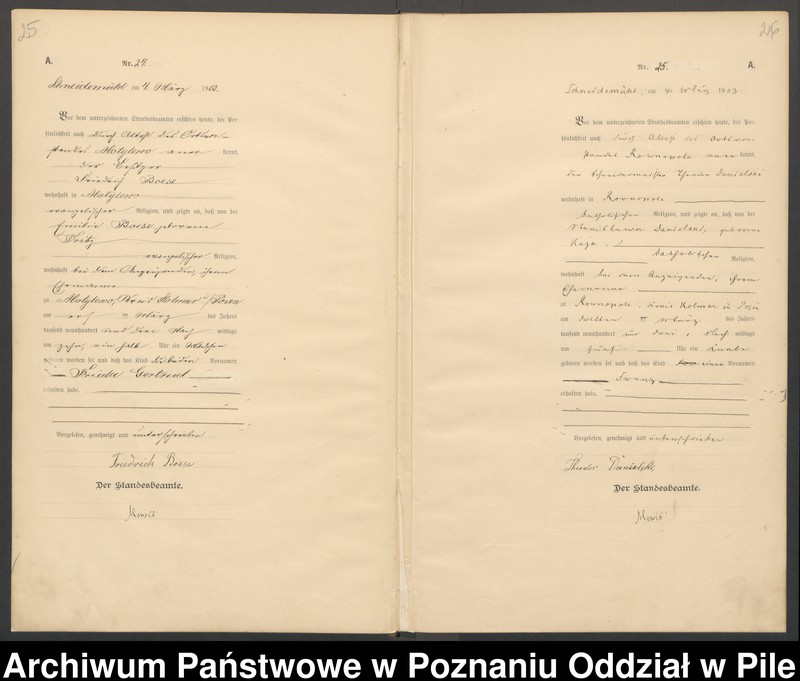 25
A.
Nr. 24.
Schneidemühl am 4. März 1903.
Vor dem unterzeichneten Standesbeamten erschien heute, der Per-
sönlichkeit nach durch Attest des Ortsvor-
standes Motylewo aner kannt,
der Besitzer
Friedrich Boese
wohnhaft in Motylewo
evangelischer Religion, und zeigte an, daß von der
Emilie Boese geborenen
evangelischer Religion,
wohnhaft bei dem Anzeigenden, ihrem
Ehemanne
zu Motylewo, Kreis Kolmar i/Posen
am März des Jahres
tausend neunhundert und drei Nach mittags
um zehn ein halb Uhr ein Mädchen
geboren worden sei und daß das Kind die beiden Vornamen
Frieda Gertrud
erhalten habe.
Vorgelesen, genehmigt und unterschrieben
Friedrich Boese
Der Standesbeamte.
26
Nr. 25.
A.
Schneidemühl, am 4. März 1903.
Vor dem unterzeichneten Standesbeamten erschien heute, der Per-
sönlichkeit nach durch Attest des Ortsvor-
standes Rownopole aner kannt,
der Schneidermeister Theodor Danielski
wohnhaft in Rownopole
katholischer Religion, und zeigte an, daß von der
Stanislawa Danielski, geborenen
katholischer Religion,
wohnhaft bei dem Anzeigenden, ihrem
Ehemanne
zu Rownopole, Kreis Kolmar in Posen
am März des Jahres
tausend neunhundert und drei, Nach mittags
um fünf Uhr ein Knabe
geboren worden sei und daß das Kind einen Vornamen
Franz
erhalten habe.
Vorgelesen, genehmigt und unterschrieben
Theodor Danielski
Der Standesbeamte.
Archiwum Państwowe w Poznaniu Oddział w Pile